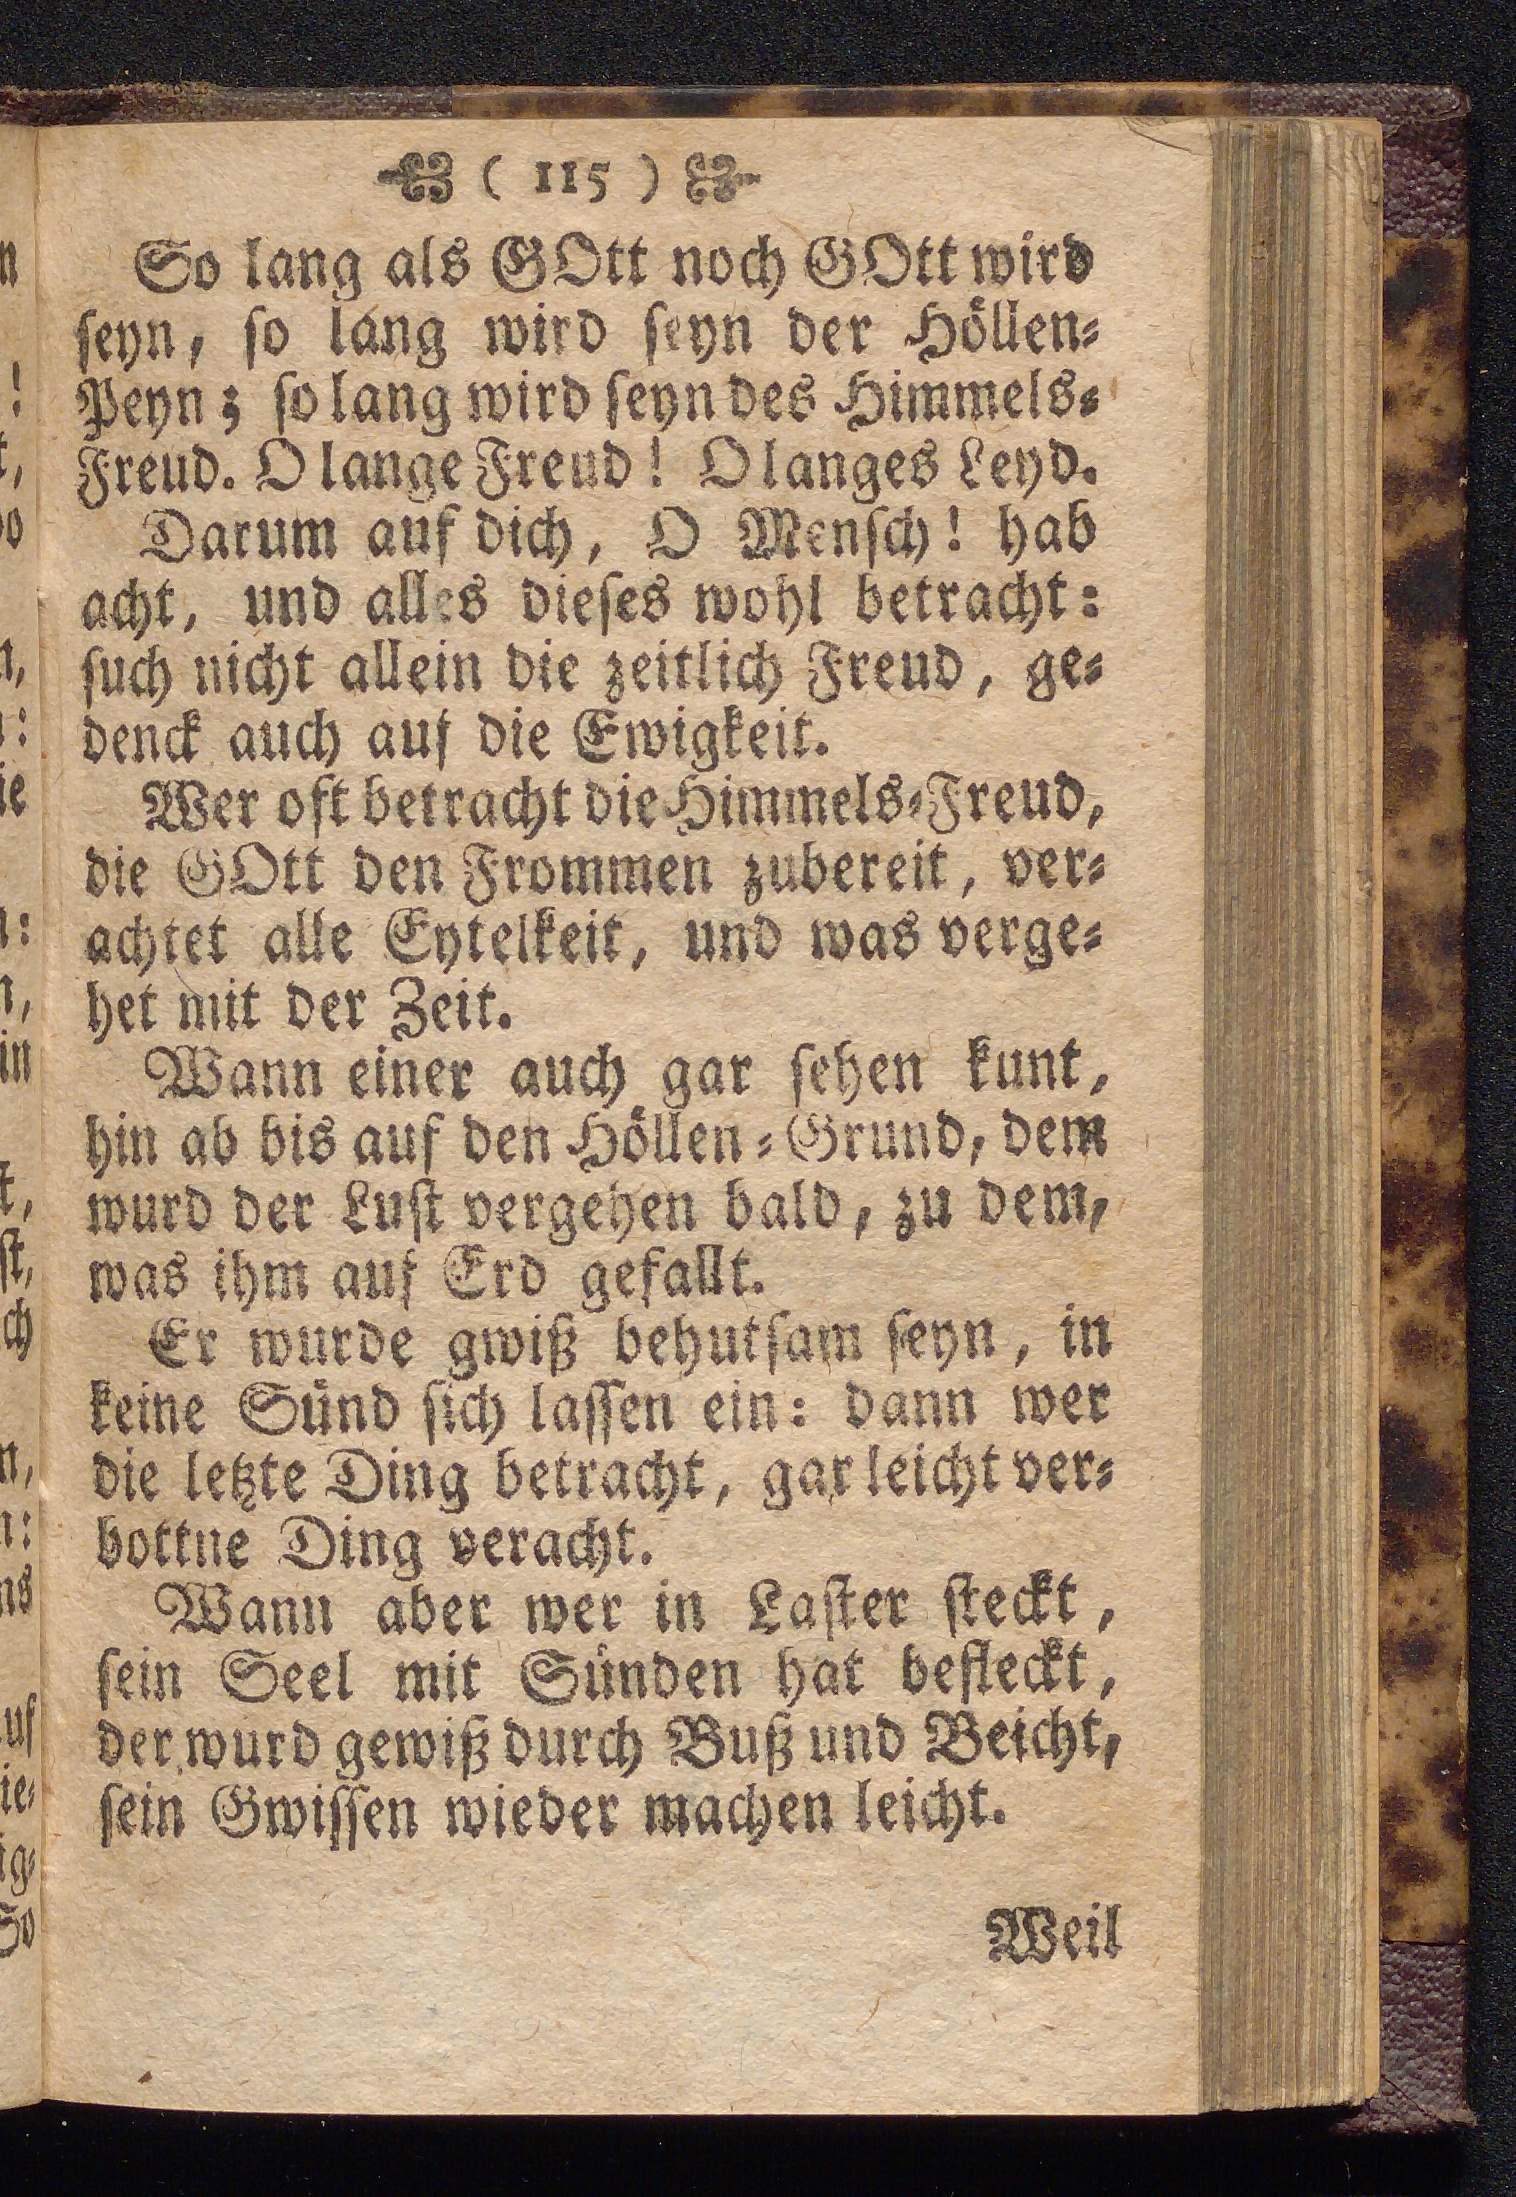 ( 115 )
So lang als GOtt noch GOtt wird
seyn, so lang wird seyn der Höllen-
Peyn; so lang wird seyn des Himmels-
Freud. O lange Freud! O langes Leyd.
Darum auf dich, O Mensch! hab
acht, und alles dieses wohl betracht:
such nicht allein die zeitlich Freud, ge-
denck auch auf die Ewigkeit.
Wer oft betracht die Himmels-Freud,
die GOtt den Frommen zubereit, ver-
achtet alle Eytelkeit, und was verge-
het mit der Zeit.
Wann einer auch gar sehen kunt,
hin ab bis auf den Höllen-Grund, dem
wurd der Lust vergehen bald, zu dem,
was ihm auf Erd gefallt.
Er wurde gwiß behutsam seyn, in
keine Sünd sich lassen ein: dann wer
die letzte Ding betracht, gar leicht ver-
bottne Ding veracht.
Wann aber wer in Laster steckt,
sein Seel mit Sünden hat befleckt,
der wurd gewiß durch Buß und Beicht,
sein Gwissen wieder machen leicht.
Weil